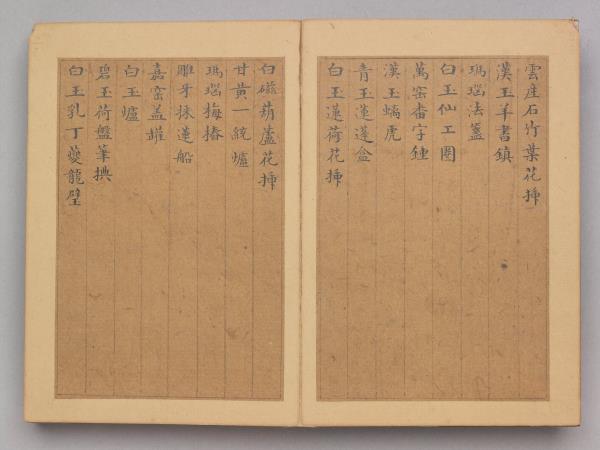 雲産石竹葉花揷
漢玉羊書鎮
瑪瑙法盞
白玉仙工圏
萬窑番字鍾
漢玉螭虎
青玉蓮蓬盒
白玉蓮荷花揷
白磁葫蘆花揷
甘黄一統爐
瑪瑙梅椿
雕牙採蓮船
嘉窑盖罐
白玉爐
碧玉荷盤筆㨾
白玉乳丁夔龍璧